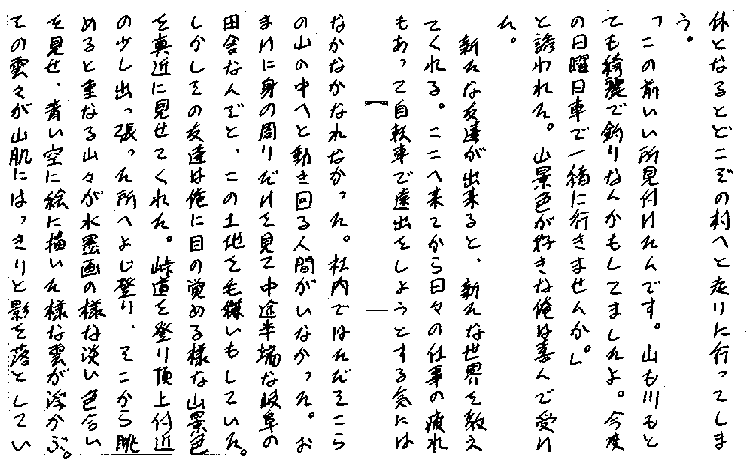 休となるとどこぞの村へと走りに行ってしま
う。
「この前いい所見付けたんです。山も川もと
ても綺麗で釣りなんかもしてましたよ。今度
の日曜日車で一緒に行きませんか。」
と誘われた。山景色が好きな俺は喜んで受け
た。
新たな友達が出来ると、新たな世界を教え
てくれる。ここへ来てから日々の仕事の疲れ
もあって自転車で遠出をしようとする気には
なかなかなれなかった。社内ではただそこら
の山の中へと動き回る人間がいなかった。お
まけに身の周りだけを見て中途半端な岐阜の
田舎なんでと、この土地を毛嫌いもしていた。
しかしその友達は俺に目の覚める様な山景色
を真近に見せてくれた。峠道を登り頂上付近
の少し出っ張った所へよじ登り、そこから眺
めると重なる山々が水墨画の様な淡い色合い
を見せ、青い空に絵に描いた様な雲が浮かぶ。
その雲々が山肌にはっきりと影を落としてい